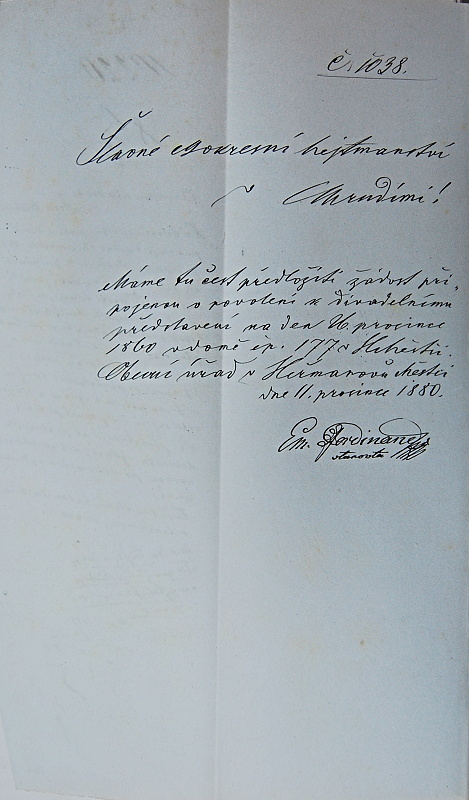 Č. 1038.
Slavné c.k. okresní hejtmanství
v Chrudími!
Máme tu čest předložiti žádost při-
pojenou o povolení k divadelnímu
představení na den 26. prosince
1880 v domě čp. 177 v Heř.
Obecní úřad v Heřmanovu Městci
dne 11. prosince 1880.
Em. Ferdinand
starosta